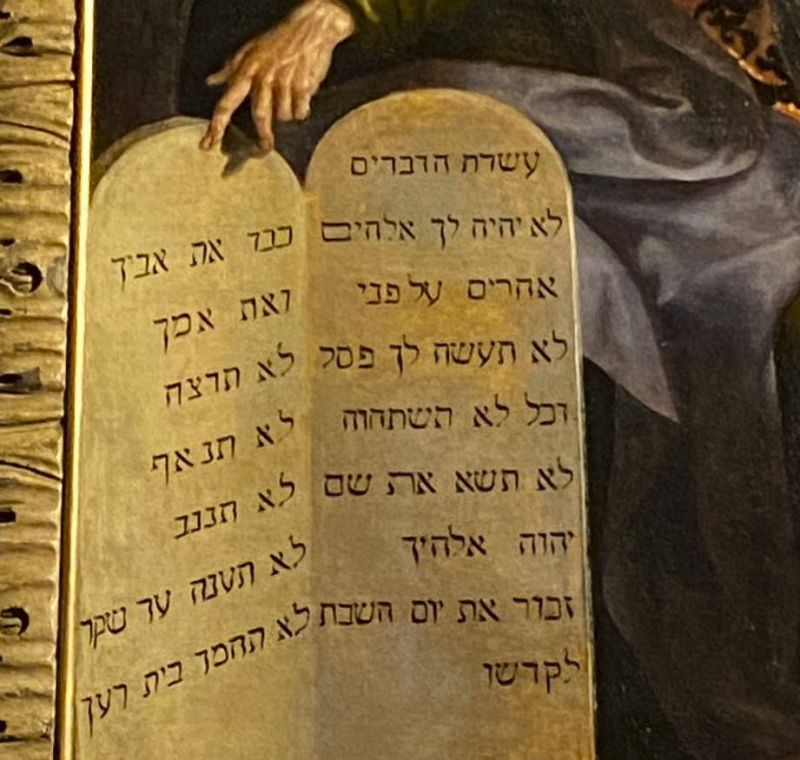 עשרת הדברים
לא יהיה לך אלהים
אהרים על פני
לא תעשה לך פסל
וכל לא תשתחוה
לא תשא את שם
יהוה אלהיך
זכור את יום השבת
לקדשו
כבד את אביך
ואת אמך
לא תרצח
לא תנאף
לא תננב
לא תענה עד שקר
לא תחמך בית רעך